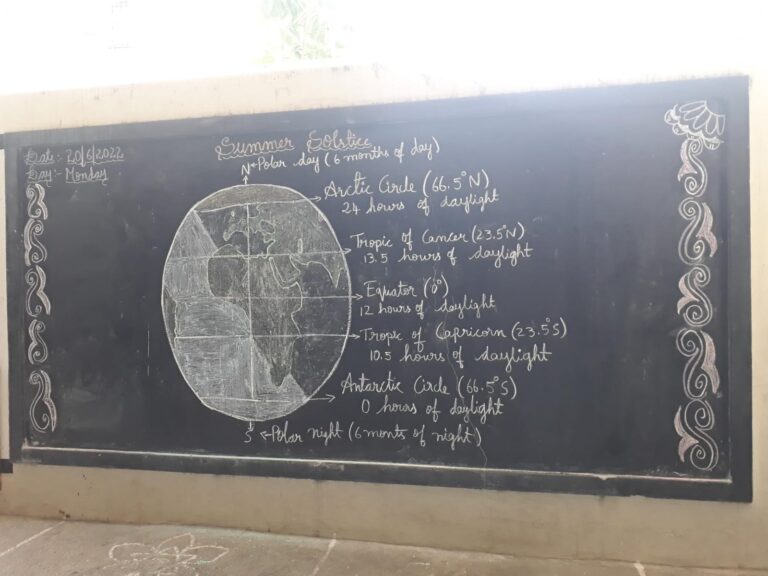 Date:- 20/6/2022
Day:- Monday
Summer Solstice
N←Polar day (6 months of day)
Arctic Circle (66.5°N)
24 hours of daylight
Tropic of Cancer (23.5°N)
13.5 hours of daylight
Equator (0°)
12 hours of daylight
Tropic of Capricorn (23.5°S)
10.5 hours of daylight
Antarctic Circle (66.5°S)
0 hours of daylight
S ←Polar night (6 monts of night)